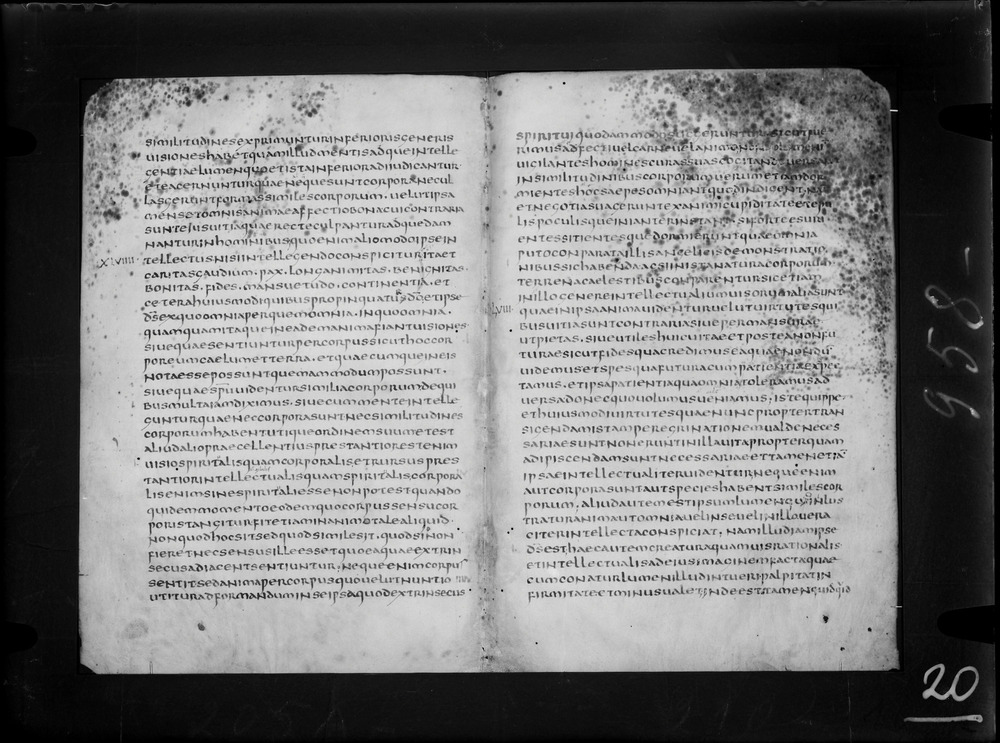 similitudines exprimuntur inferioris generis
visiones habet quam illud mentis adque intelle
gentiae lumen quo et ista inferiora diiudicantur
et ea cernuntur quae neque sunt corpora nec ul
las gerunt formas similes corporum. velut ipsa
mens et omnis animae affectio bona cui contraria
sunt eius vitia quae recte culpantur adque dam
nantur in hominibus quo enim alio modo ipse in
XLVIIII tellectus nisi intellegendo conspicitur ita et
caritas gaudium. pax. longanimitas. benignitas.
bonitas. fides. mansuetudo. continentia. et
cetera huiusmodi quibus propinquatur dō et ipse
ds̄ ex quo omnia per quem omnia. in quo omnia.
quamquam itaque in eadem anima fiant visiones
sive quae sentiuntur per corpus sicut hoc cor
poreum caelum et terra. et quaecumque in eis
nota esse possunt quemammodum possunt.
sive quae spū videntur similia corporum de qui
bus multa iam diximus. sive cum mente intelle
guntur quae nec corpora sunt nec similitudines
corporum habent utique ordinem suum et est
aliud alio praecellentius prestantior est enim
visio spiritalis quam corporalis. et rursus pres
tantior intellectualis quam spiritalis. corpora
lis enim sine spiritali esse non potest quando
quidem momento eodem quo corpus sensu cor
poris tangitur fit etiam in animo tale aliquid.
non quod hoc sit sed quod simile sit. quod si non
fieret nec sensus ille esset quo ea quae extrin
secus adiacent sentiuntur. neque enim corpus
sentit sed anima per corpus quo velut nuntio
utitur ad formandum in seipsa quod extrinsecus
spiritui quodammodo
rimus adfecti vel carne vel animo
vigilantes homines curas suas cogitando versant
in similitudinibus corporum verum etiam dor
mientes hoc saepe somniant quod indigent nam
et negotia sua gerunt ex animi cupiditate et epu
lis poculisque inianter instant si forte esuri
entes sitientesque dormierunt quae omnia
puto conparata illis angelicis demonstratio
nibus sic habenda ac si in ista natura corporum
terrena caelestibus conparentur sic etiam
in illo genere intellectualium visorum alia sunt
LVIII quae in ipsa anima videntur velut virtutes qui
bus vitia sunt contraria sive permansurae
ut pietas. sive utiles huic vitae et postea non fu
turae sicut fides qua credimus ea quae nondum
videmus et spes qua futura cum patientia expec
tamus. et ipsa patientia qua omnia toleramus ad
versa donec quo volumus veniamus. iste quippe
et huiusmodi virtutes quae nunc propter tran
sigendam istam peregrinationem valde neces
sariae sunt non erunt in illa vita propter quam
adipiscendam sunt necessariae et tamen etiā
ipsae intellectualiter videntur neque enim
aut corpora sunt aut species habent similes cor
porum. aliud autem est ipsum lumen quo inlus
tratur anima ut omnia vel in se vel in illo vera
citer intellecta conspiciat. nam illud iam ipse
ds̄ est haec autem creatura quamvis rationalis
et intellectualis ad eius imaginem facta quae
cum conatur lumen illud intueri palpitat in
firmitate et minus valet inde est tamen quidquid
958 -
20